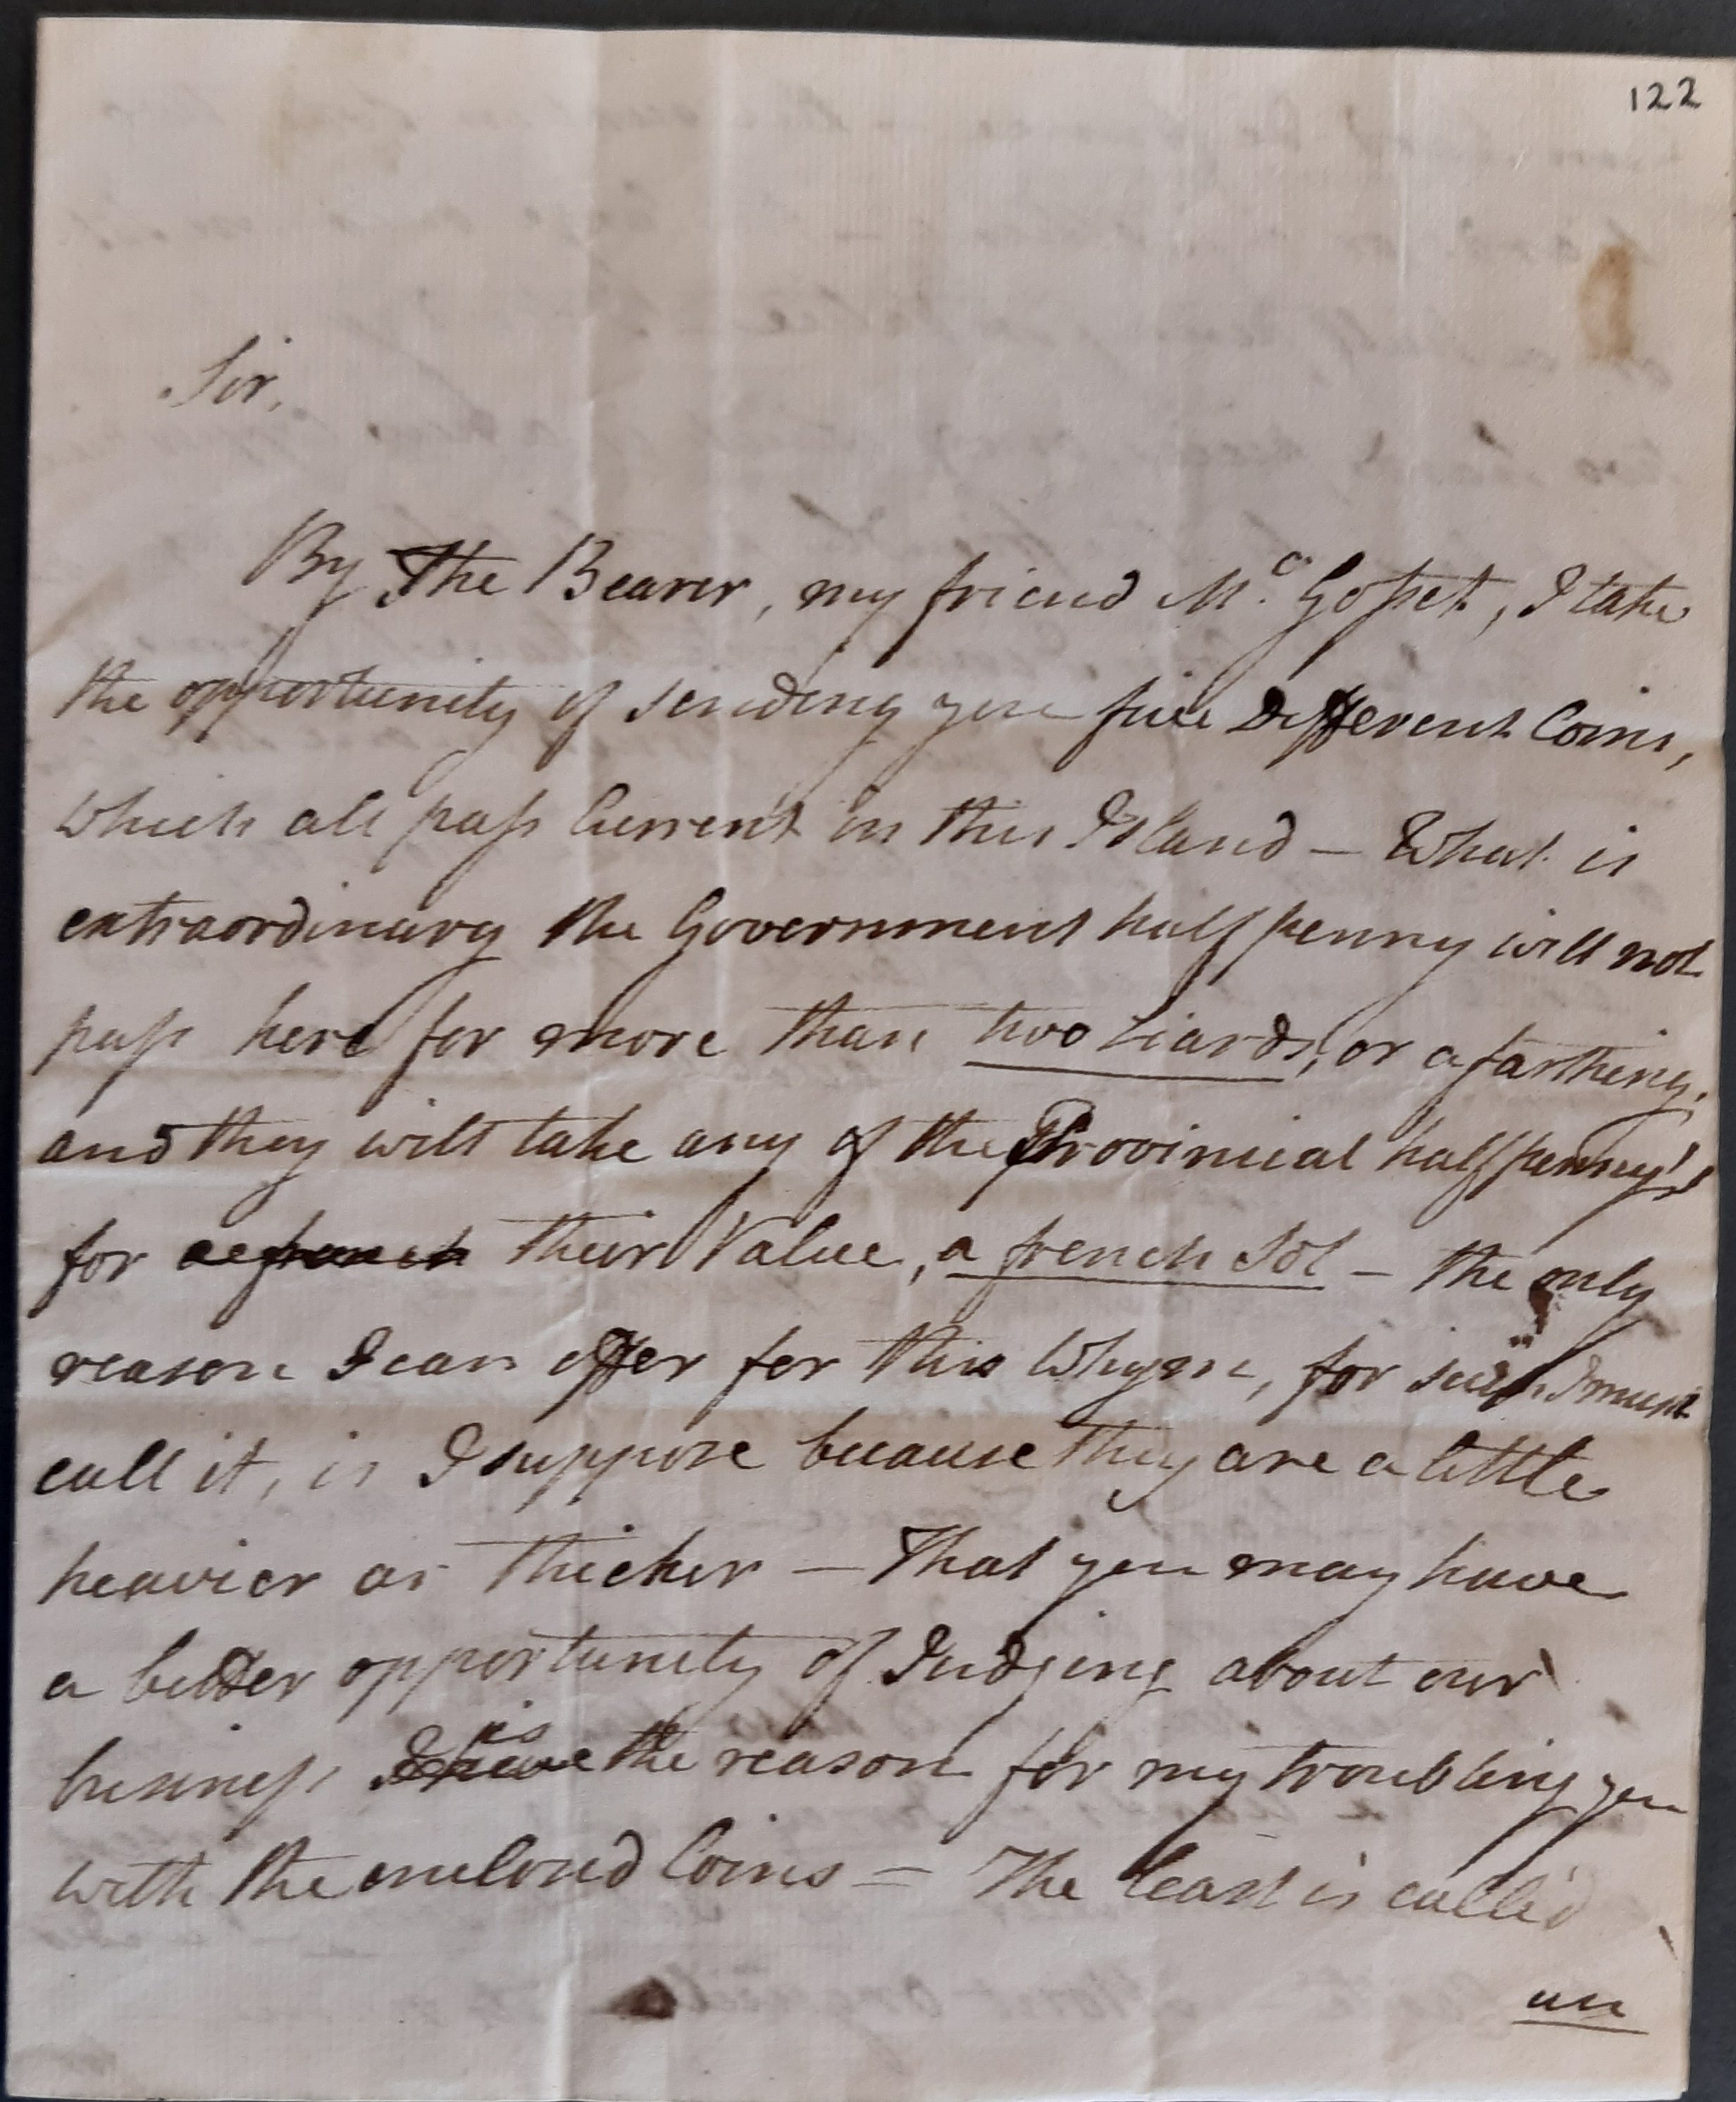 122
Sir,
By The Bearer, my friend Mr. Gosset, I take
the opportunity of sending you five Different Coins,
which all pass Current in this Island — What is
extraordinary the Government half penny will not
pass here for more than two Liards, or a farthing,
and they will take any of the Provinical halfpenny's
for a french their Value, a french Sol — the only
reason I can offer for this Whym, for such I must
call it, is I suppose because they are a little
heavier or thicker — That you may have
a better opportunity of Judging about our
business is the reason for my troubling you
with the enclosed Coins = The least is called
un